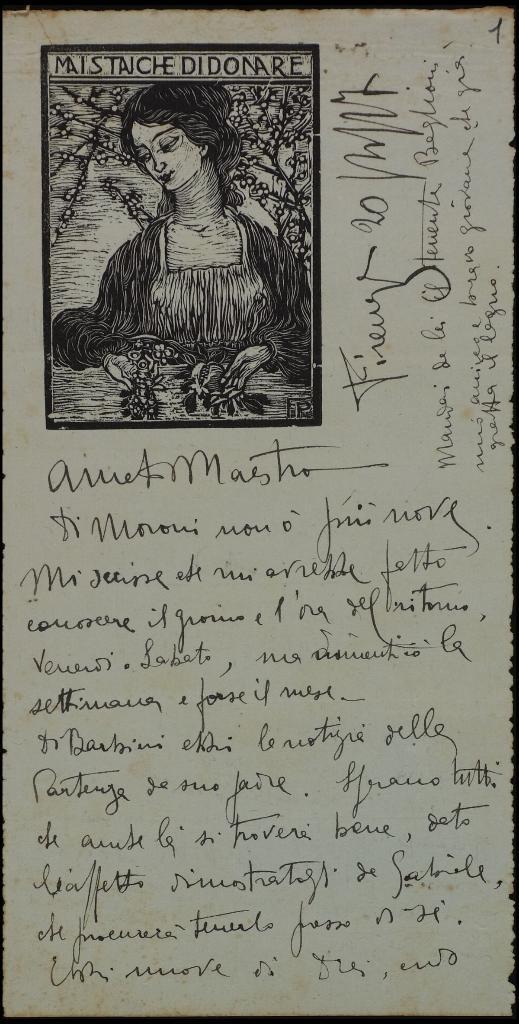 1
MAI STANCHE DI DONARE
Firenze 20
Mandai da lei il tenente Baglioni
mio amico e bravo giovane che già
gratta il legno.
Amato Maestro
Di Moroni non ò più nove.
Mi scrisse che mi avrebbe fatto
conoscere il giorno e l'ora del ritorno,
Venerdì o Sabato, ma dimenticò la
settimana e forse il mese.
Di Barbini ebbi la notizia della
Partenza da suo padre. Sperano tutti
che anche là si troverà bene, dato
l'affetto dimostratogli da Gabriele,
che procurerà tenerlo presso di sé.
Ebbi nuove di Drei, credo